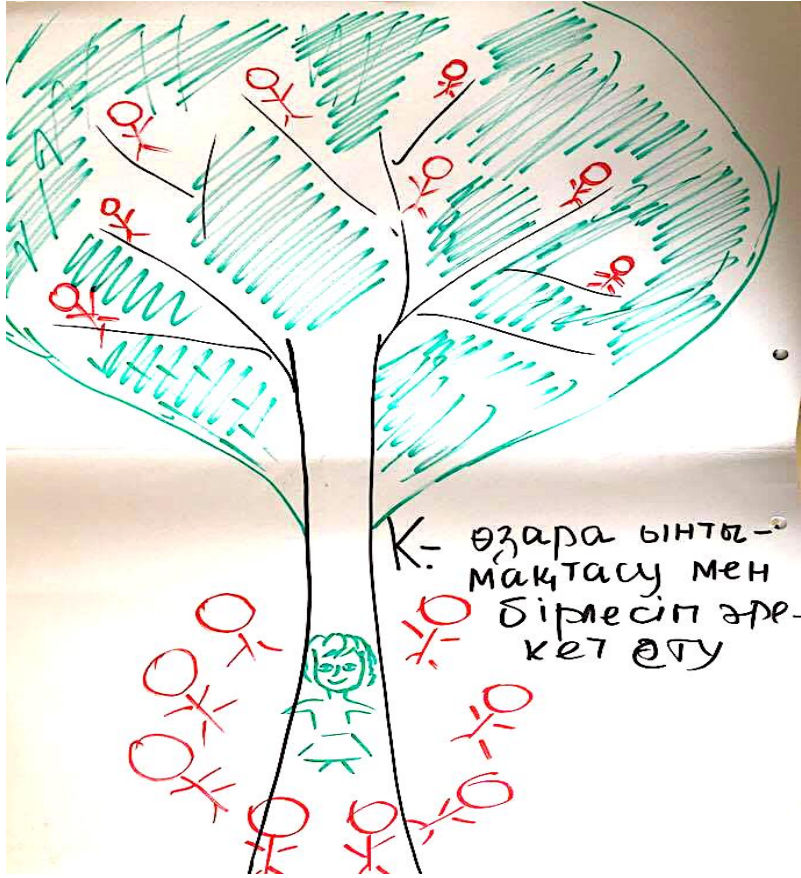 К:- өзара ынты-
мақтасу мен
бірлесіп әре-
кет ету